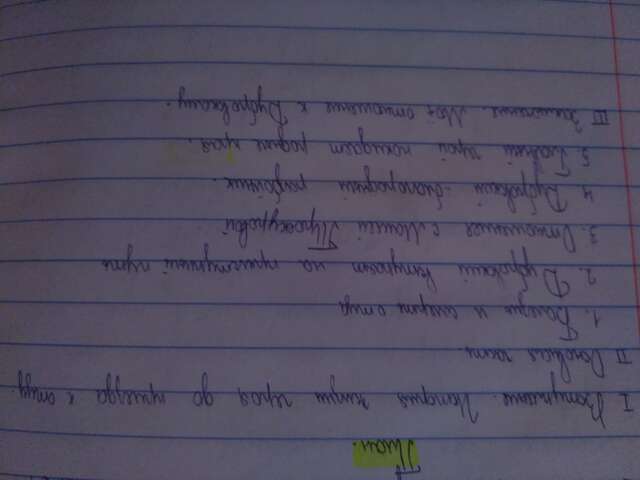 План.
I Вступление. История жизни героя до приезда к отцу.
II Основная часть.
1. Болезнь и смерть отца
2. Дубровский вступает на преступный путь
3. Отношения с Машей Троекуровой
4. Дубровский - благородный разбойник.
5. герой покидает родные края.
III Заключение. Моё отношение к Дубровскому.